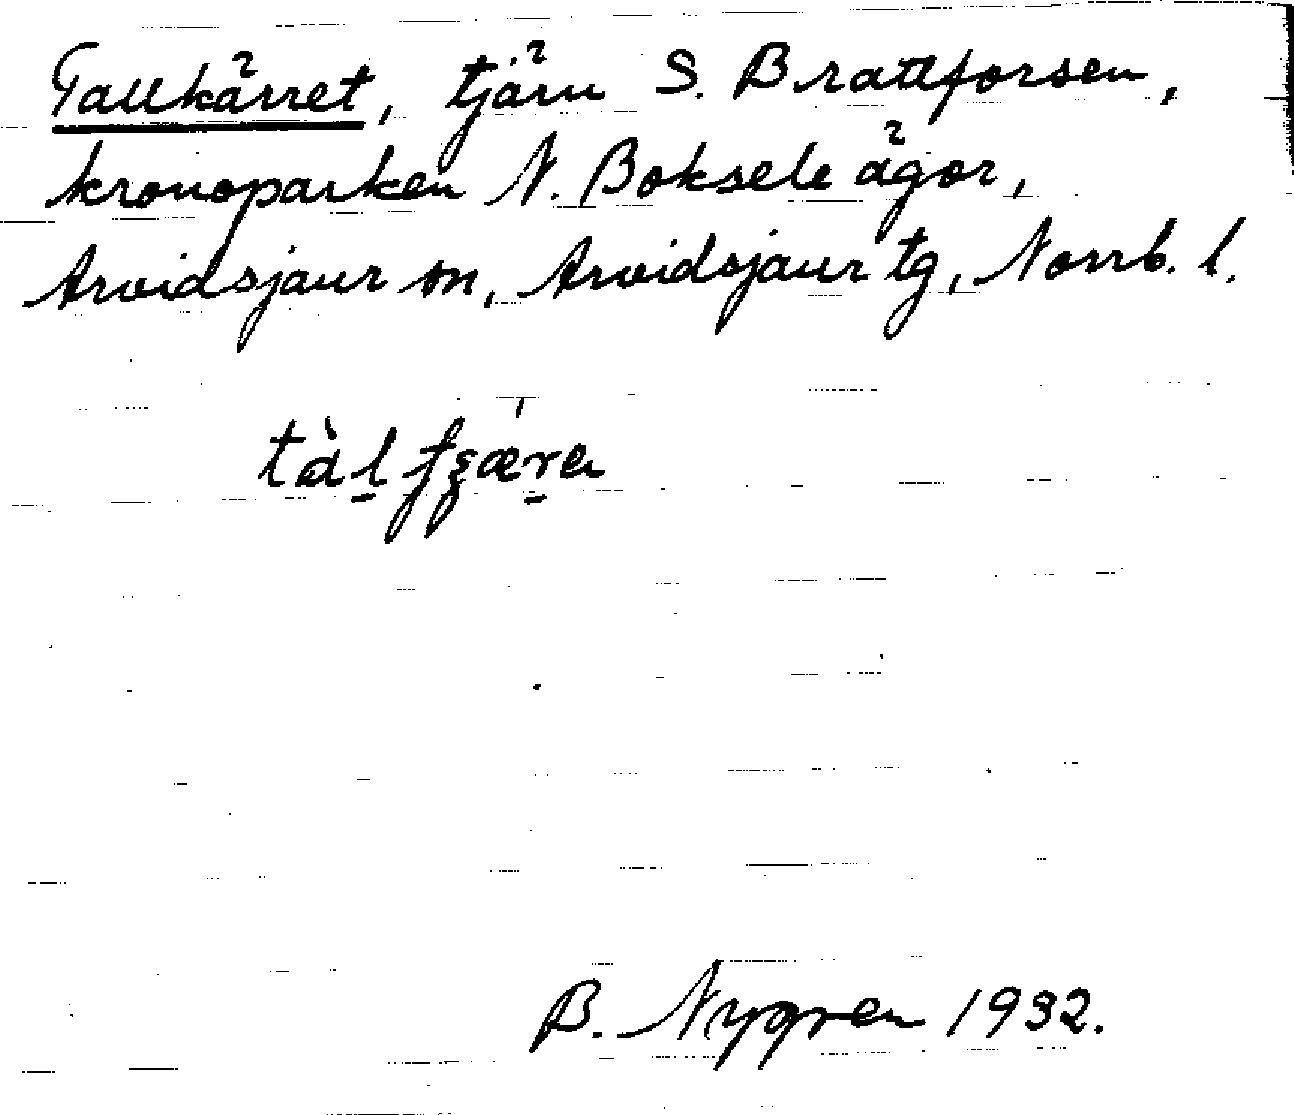 Tallkärret, tjärn S. Brattforsen,
kronoparken N. Boksele ägor,
Arvidsjaur sn, Arvidsjaur tg, Norrb. l.
B. Nygren 1932.